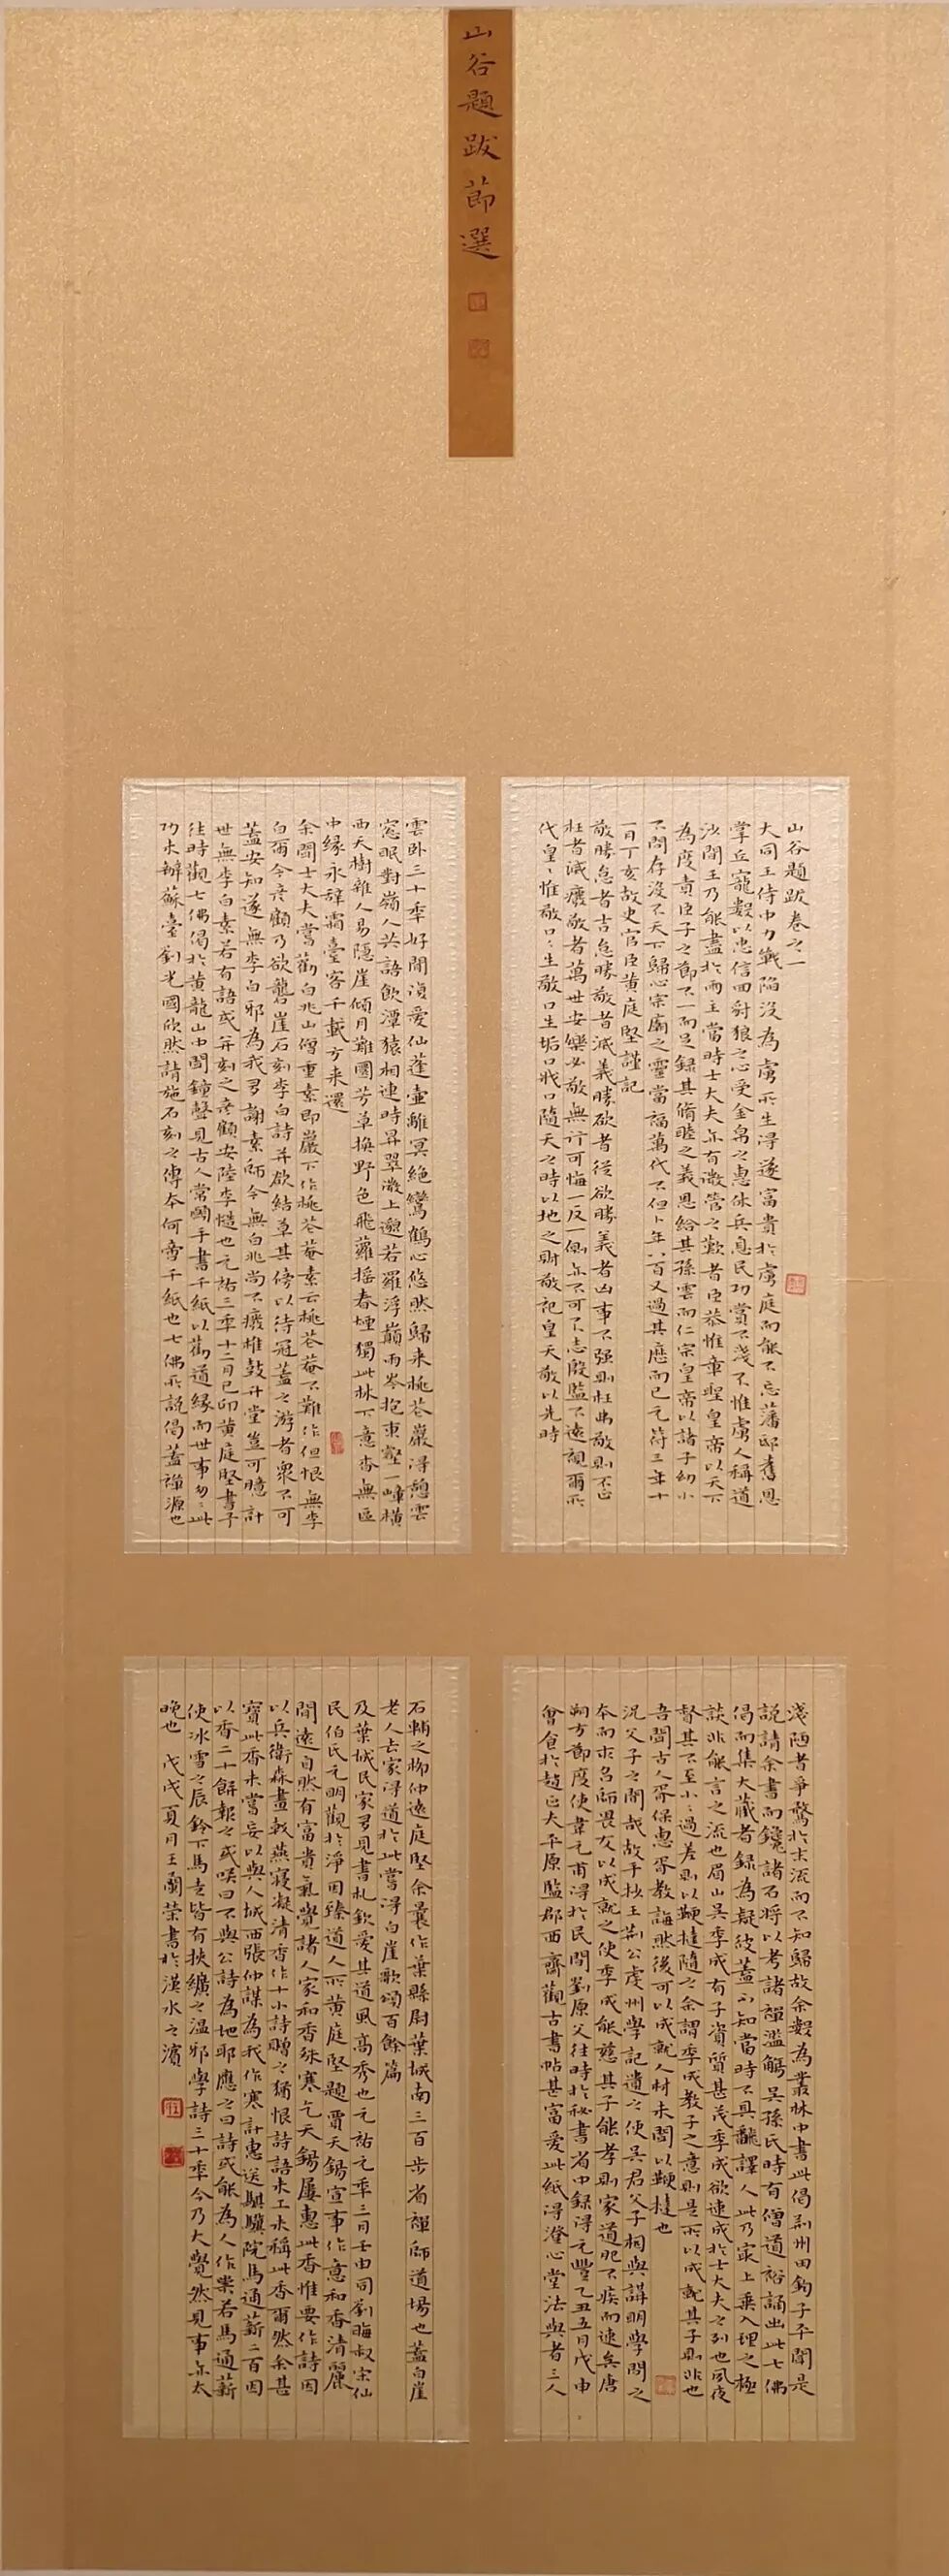 山谷題跋節選
山谷題跋卷之一
大同王侍中力戰陷沒為虜所生得遂富貴於虜庭而能不忘藩邸舊恩
掌丘寵數以忠信回豺狼之心受金帛之惠休兵息民功賞不淺不惟虜人稱道
沙間王乃能盡於兩主當時士大夫亦有微管之歎者臣恭惟章聖皇帝以天下
為度責臣子之節不一而足錄其脩睦之義恩給其孫雲而仁宗皇帝以諸子幼小
不問存沒不天下歸心宗廟之靈當福萬代不但卜年八百又過其曆而已元符三年十
一月丁亥故史官臣黃庭堅謹記
敬勝怠者吉怠勝敬者滅義勝欲者從欲勝義者凶事不強則枉弗敬則不正
枉者滅癈敬者萬世安樂必敬無行可悔一反一側亦不可不志殷監不遠視爾所
代皇皇惟敬口口生敬口生垢口戕口隨天之時以地之財敬祀皇天敬以先時
雲臥三十年好閒復愛仙蓬壺雖冥絕鸞鶴心悠然歸來桃花巖得憩雲
窓眠對嶺人共語飲潭猿相連時昇翠微上邈若羅浮巔兩岑抱東壑一嶂橫
西天樹雜人易隱崖傾月難圓芳草換野色飛蘿搖春煙獨此林下意杳無區
中緣永辭霜臺客千載方來還
余聞士大夫嘗勸白兆山僧重素即巖下作桃花菴素云桃花菴不難作但恨無李
白爾今彥顧乃欲礱崖石刻李白詩并欲結草其傍以待冠蓋之游者衆不可
蓋安知遂無李白邪為我多謝素師今無白兆尚不癈椎鼓升堂豈可臆計
世無李白素若有語或并刻之彥顧安陸李慥也元祐三年十二月己卯黃庭堅書予
往時觀七佛偈於黃龍山中聞鐘聲見古人常願手書千紙以勸道緣而世事匆匆此
功未辦蘇臺劉光國欣然請施石刻之傳本何啻千紙也七佛所說偈蓋禪源也
淺陋者爭騖於末流而不知歸故余數為叢林中書此偈荊州田鈞子平聞是
說請余書而鑱諸石將以考諸禪濫觴吳孫氏時有僧道裕誦出此七佛
偈而集大藏者錄為疑彼蓋不知當時不具翻譯人此乃最上乘入理之極
談非能言之流也眉山吳季成有子資質甚茂季成欲速成於士大夫之列也夙夜
督其不至小小過差則以鞭撻隨之余謂季成教子之意則是所以成就其子則非也
吾聞古人胥保惠胥教誨然後可以成就人材未聞以鞭撻也
況父子之間哉故手抄王荊公虔州學記遺之使吳君父子相與講明學問之
本而求名師畏友以成就之使季成能慈其子能孝則家道肥不疾而速矣唐
朔方節度使韋元甫得於民間劉原父往時於秘書省中錄得元豐乙丑五月戊申
會食於趙正夫平原監郡西齋觀古書帖甚富愛此紙得澄心堂法與者三人
石輔之柳仲遠庭堅余曩作葉縣尉葉城南三百步省禪師道場也蓋白崖
老人去家得道於此嘗得白崖歌頌百餘篇
及葉城民家多見書札欽愛其道風高秀也元祐元年三月壬申同劉晦叔宋仙
民伯氏元明觀於淨因臻道人所黃庭堅題賈天錫宣事作意和香清麗
閒遠自然有富貴氣覺諸人家和香殊寒乞天錫屢惠此香惟要作詩因
以兵衛森畫戟燕寢凝清香作十小詩贈之猶恨詩語未工未稱此香爾然余甚
寶此香未嘗妄以與人城西張仲謀為我作寒計惠送騏驥院馬通薪二百因
以香二十餅報之或咲曰不與公詩為地耶應之曰詩或能為人作祟若馬通薪
使冰雪之辰鈴下馬走皆有挾纊之溫邪學詩三十年今乃大覺然見事亦太
晚也 戊戌夏月王蘭榮書於漢水之濱